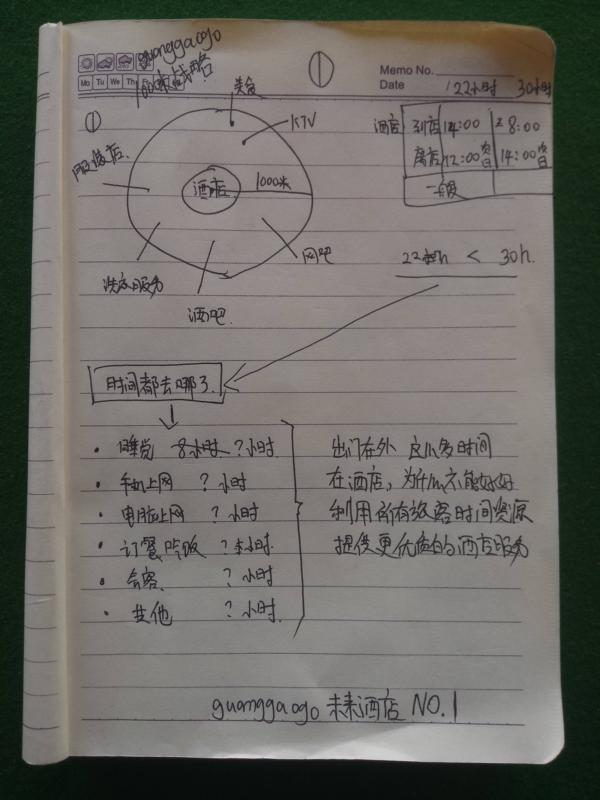 guanggaogo
1000米战略
①
Memo No.
Mo Tu We Th Fr
Date 22小时 30小时
①
美食
KTV
服装店
酒店
1000米
网吧
洗衣服务
酒吧
酒店 到店 14:00 8:00
离店 12:00次日 14:00次日
一般
22h < 30h.
时间都去哪了
· 睡觉 8小时 ?小时
· 手机上网 ?小时
· 电脑上网 ?小时
· 订餐吃饭 ?小时
· 会客 ?小时
· 其他 ?小时
出门在外 这么多时间
在酒店,为什么不能好好
利用所有旅客时间资源
提供更优质的酒店服务
guanggaogo 未来酒店 NO.1